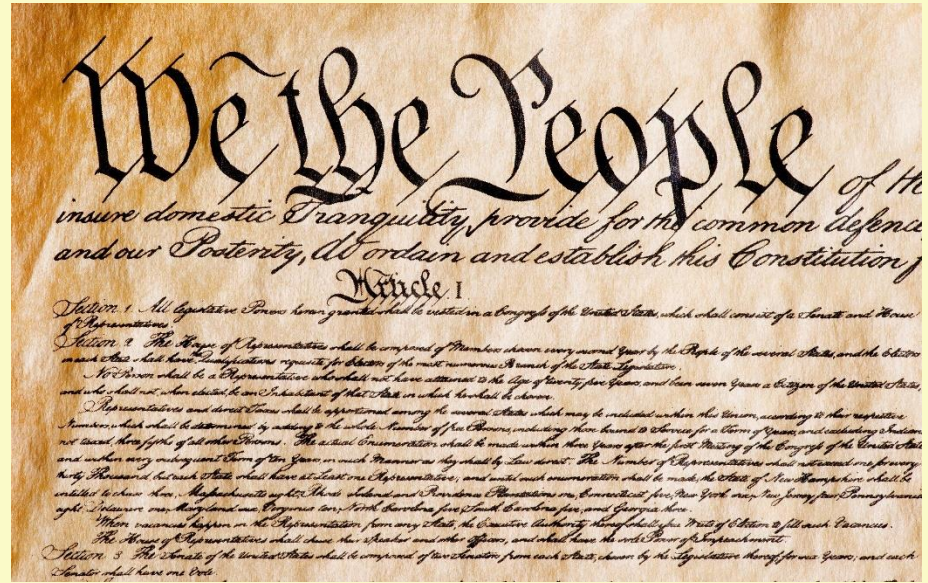 We the People of th
insure domestic Tranquility, provide for the common defence
and our Posterity, do ordain and establish this Constitution f
Article. I
Section 1 All legislative Powers herein granted shall be vested in a Congress of the United States, which shall consist of a Senate and House
of Representatives.
Section 2 The House of Representatives shall be composed of Members chosen every second Year by the People of the several States, and the Electors
in each State shall have Qualifications requisite for Electors of the most numerous Branch of the State Legislature.
No Person shall be a Representative who shall not have attained to the Age of twenty five Years, and been seven Years a Citizen of the United States,
and who shall not, when elected, be an Inhabitant of that State in which he shall be chosen.
Representatives and direct Taxes shall be apportioned among the several States which may be included within this Union, according to their respective
Numbers, which shall be determined by adding to the whole Number of free Persons, including those bound to Service for a Term of Years, and excluding Indians
not taxed, three fifths of all other Persons. The actual Enumeration shall be made within three Years after the first Meeting of the Congress of the United State
and within every subsequent Term of ten Years, in such Manner as they shall by Law direct. The Number of Representatives shall not exceed one for every
thirty Thousand, but each State shall have at Least one Representative; and until such enumeration shall be made, the State of New Hampshire shall be
entitled to chuse three, Massachusetts eight, Rhode Island and Providence Plantations one, Connecticut five, New York six, New Jersey four, Pennsylvania
eight, Delaware one, Maryland six, Virginia ten, North Carolina five, South Carolina five, and Georgia three.
When vacancies happen in the Representation from any State, the Executive Authority thereof shall issue Writs of Election to fill such Vacancies.
The House of Representatives shall chuse their Speaker and other Officers; and shall have the sole Power of Impeachment.
Section 3 The Senate of the United States shall be composed of two Senators from each State, chosen by the Legislature thereof, for six Years; and each
Senator shall have one Vote.